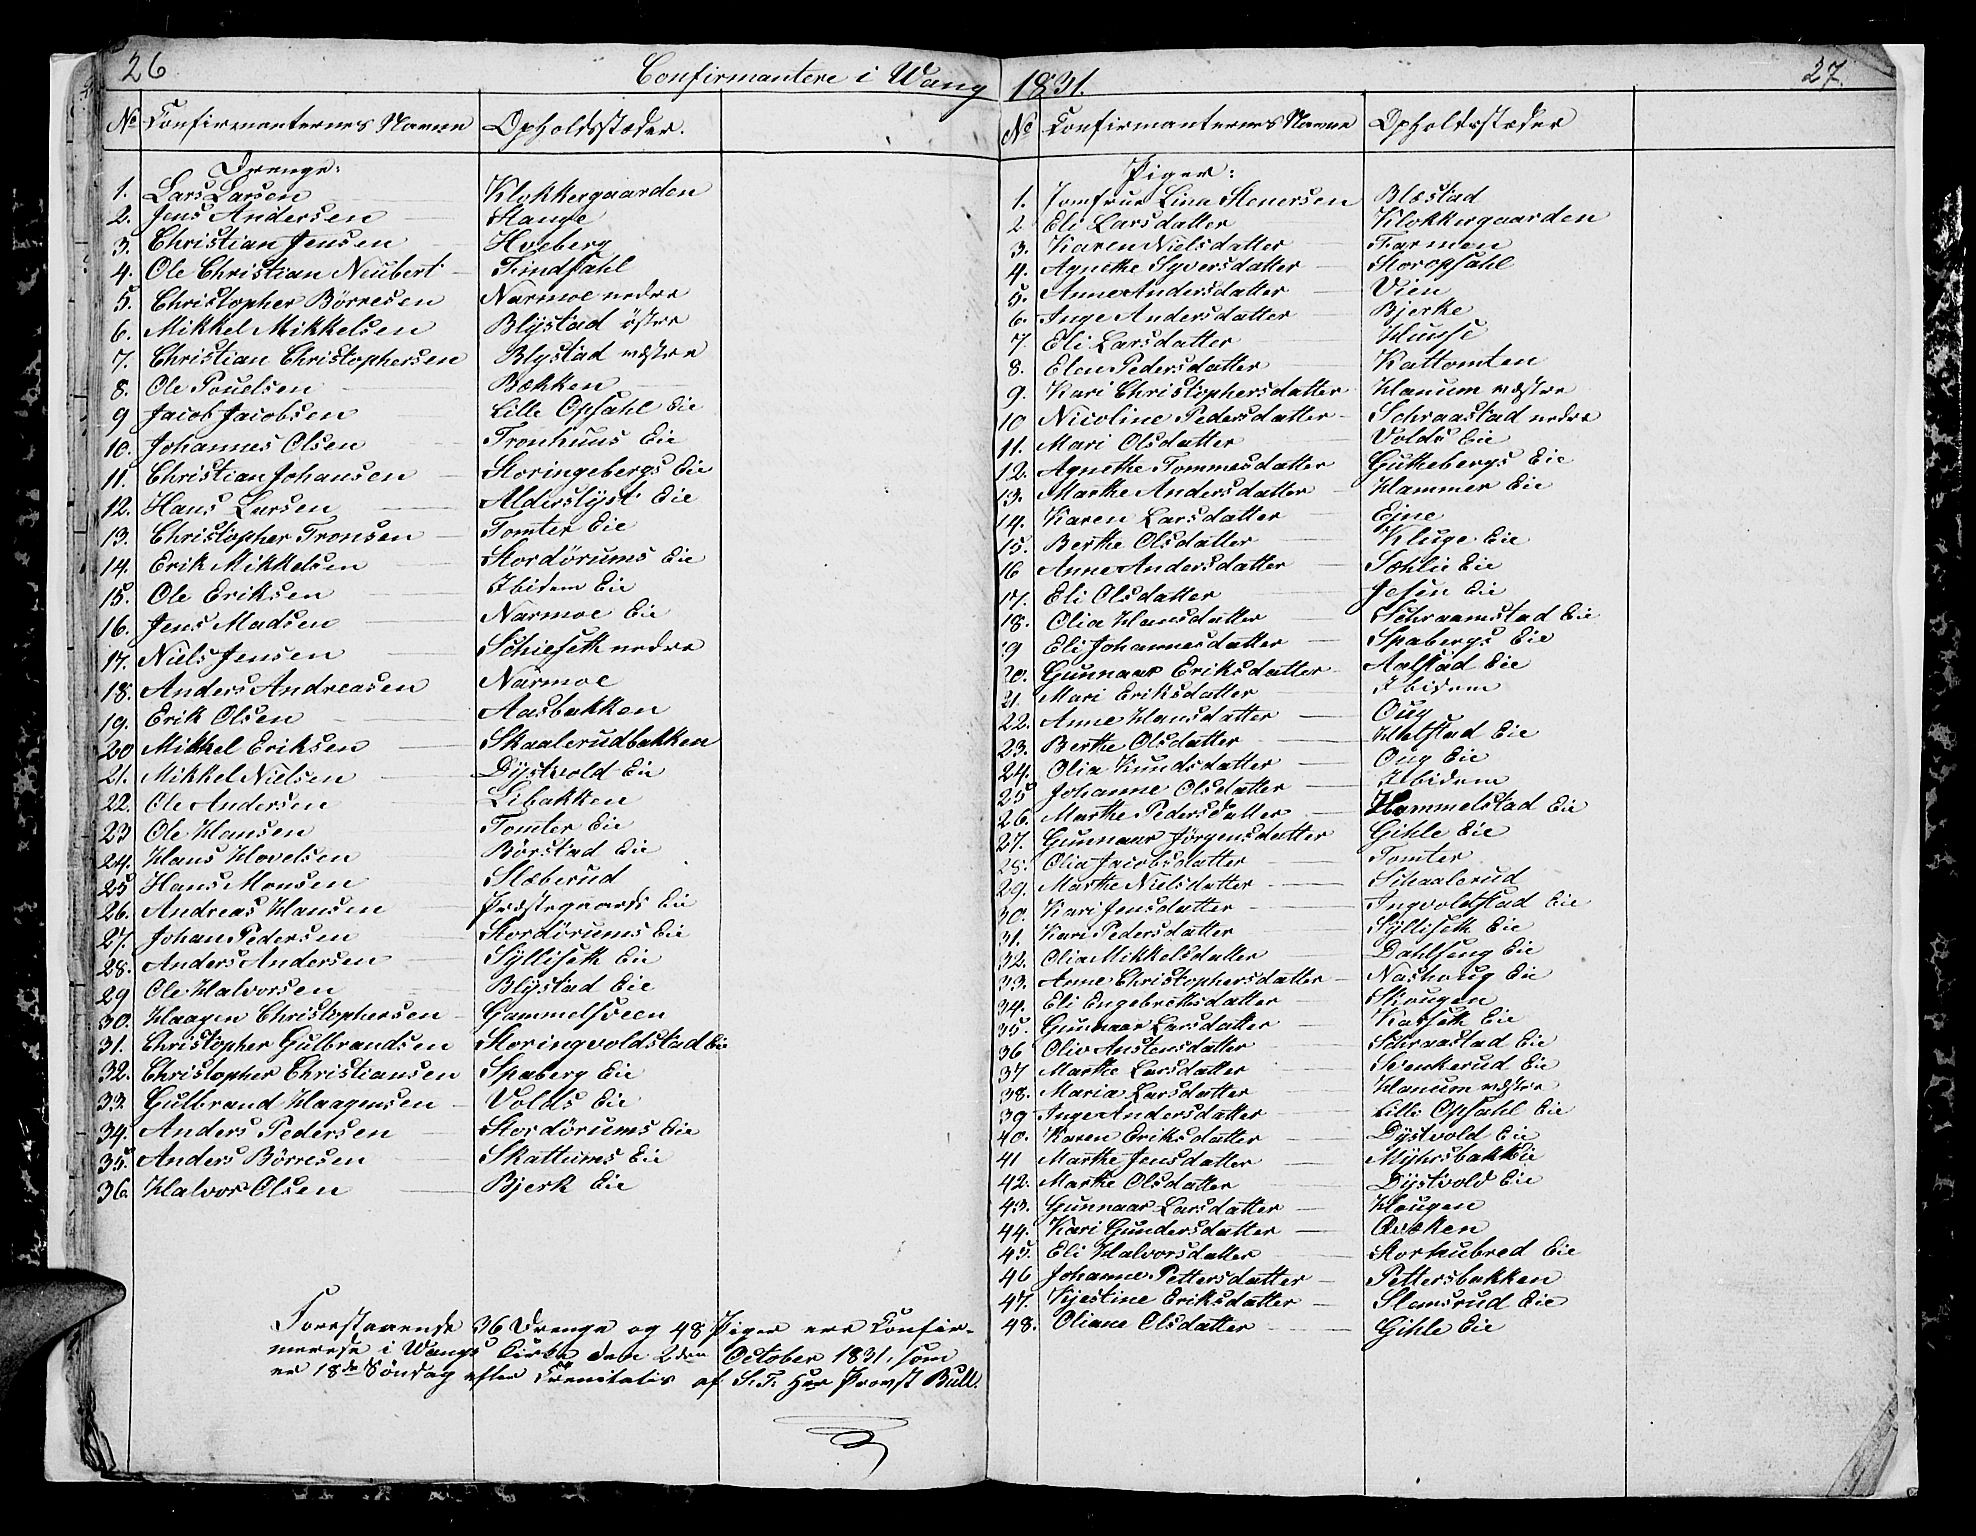 26
Confirmantere i Wang
No Confirmanternes Navne Opholdsstæder.
Drenge:
1. Lars Larsen Klokkergaarden
2. Jens Andersen Stange
3. Christian Jensen Hoeberg
4. Ole Christian Neubert Findsahl
5. Christopher Börresen Narmoe nedre
6. Mikkel Mikkelsen Blÿstad östre
7. Christian Christophersen Blystad vestre
8. Ole Pouelsen Bækken
9 Jacob Jacobsen Lille Opsahl Eie
10. Johannes Olsen Tronhuus Eie
11. Christian Johansen Storingebergs Eie
12. Hans Larsen Alderslyst Eie
13. Christopher Tronsen Tomter Eie
14. Erik Mikkelsen Stordörums Eie
15. Ole Eriksen Ibidem Eie
16. Jens Madsen Narmoe Eie
17. Niels Jensen Schieseth nedre
18. Anders Andreasen Narmoe
19. Erik Olsen Aasbakken
20 Mikkel Eriksen Skaalerudbakken
21. Mikkel Nielsen Dÿstvold Eie
22. Ole Andersen Libakken
23 Ole Hansen Tomter Eie
24. Hans Hovelsen Börstad Eie
25 Hans Monsen Slæberud
26. Andreas Hansen Præstegaards Eie
27. Johan Pedersen Stordörums Eie
28. Anders Andersen Sÿlliseth Eie
29 Ole Halvorsen Blÿstad Eie
30. Haagen Christophersen Gammelsveen
31. Christopher Gulbrandsen Storingvoldstad Eie
32. Christopher Christiansen Spaberg Eie
33. Gulbrand Haagensen Volds Eie
34. Anders Pedersen Stordörums Eie
35. Anders Börresen Skattums Eie
36. Halvor Olsen Bjerk Eie
Forestaaende 36 Drenge og 48 Piger ere Confir-
merede i Wangs Kirke den 2den October 1831, som
er 18de Söndag efter Trenitatis af S. T. Herr Provst Bull.
1831.
27.
No Confirmanternes Navne Opholdsstæder
Piger:
1. Jomfrue Lina Stenersen Blæstad
2 Eli Larsdatter Klokkergaarden
3. Karen Nielsdatter Farmen
4. Agnethe Syversdatter Storopsahl
5. Anne Andersdatter Vien
6. Inge Andersdatter Bjerke
7. Eli Larsdatter Huuse
8. Elen Pedersdatter Kattomten
9. Kari Christophersdatter Hanum vestre
10 Nicoline Pedersdatter Schraastad nedre
11. Mari Olsdatter Volds Eie
12. Agnethe Tommesdatter Guthebergs Eie
13. Marthe Andersdatter Hammer Eie
14. Karen Larsdatter Ejne
15. Berthe Olsdatter Kluge Eie
16 Anne Andersdatter Sæhlie Eie
17. Eli Olsdatter Jesen Eie
18. Olia Hansdatter Schraamstad Eie
19 Eli Johannesdatter Spabergs Eie
20. Gunnaar Eriksdatter Aalstad Eie
21. Mari Eriksdatter Ibidem
22. Anne Hansdatter Oug
23. Berthe Olsdatter Hulstad Eie
24. Olia Knudsdatter Oug Eie
25 Johanne Olsdatter Ibidem
26. Marthe Pedersdatter Hammelstad Eie
27. Gunnaar Jörgensdatter Gihle Eie
28. Olia Jacobsdatter Tomter
29. Marthe Nielsdatter Schaalerud
30. Kari Jensdatter Ingvoldstad Eie
31. Kari Pedersdatter Sÿlliseth Eie
32. Olia Mikkelsdatter Dahlseng Eie
33. Anne Christophersdatter Nashoug Eie
34. Eli Engebrektsdatter Skougen
35. Gunnaar Larsdatter Kaaseth Eie
36 Oliv Austensdatter Schraastad Eie
37 Marthe Larsdatter Svenkerud Eie
38. Maria Larsdatter Hanum vestre
39 Inge Andersdatter Lille Opsahl Eie
40. Karen Eriksdatter Dÿstvold Eie
41 Marthe Jensdatter Mÿhrsbakk Eie
42. Marthe Olsdatter Dÿstvold Eie
43. Gunnaar Larsdatter Hougen
44. Kari Gundersdatter Qvæken
45. Eli Halvorsdatter Storhubred Eie
46 Johanne Pettersdatter Pettersbakken
47. Kjestine Eriksdatter Slamsrud Eie
48. Oliane Olsdatter Gihle Eie